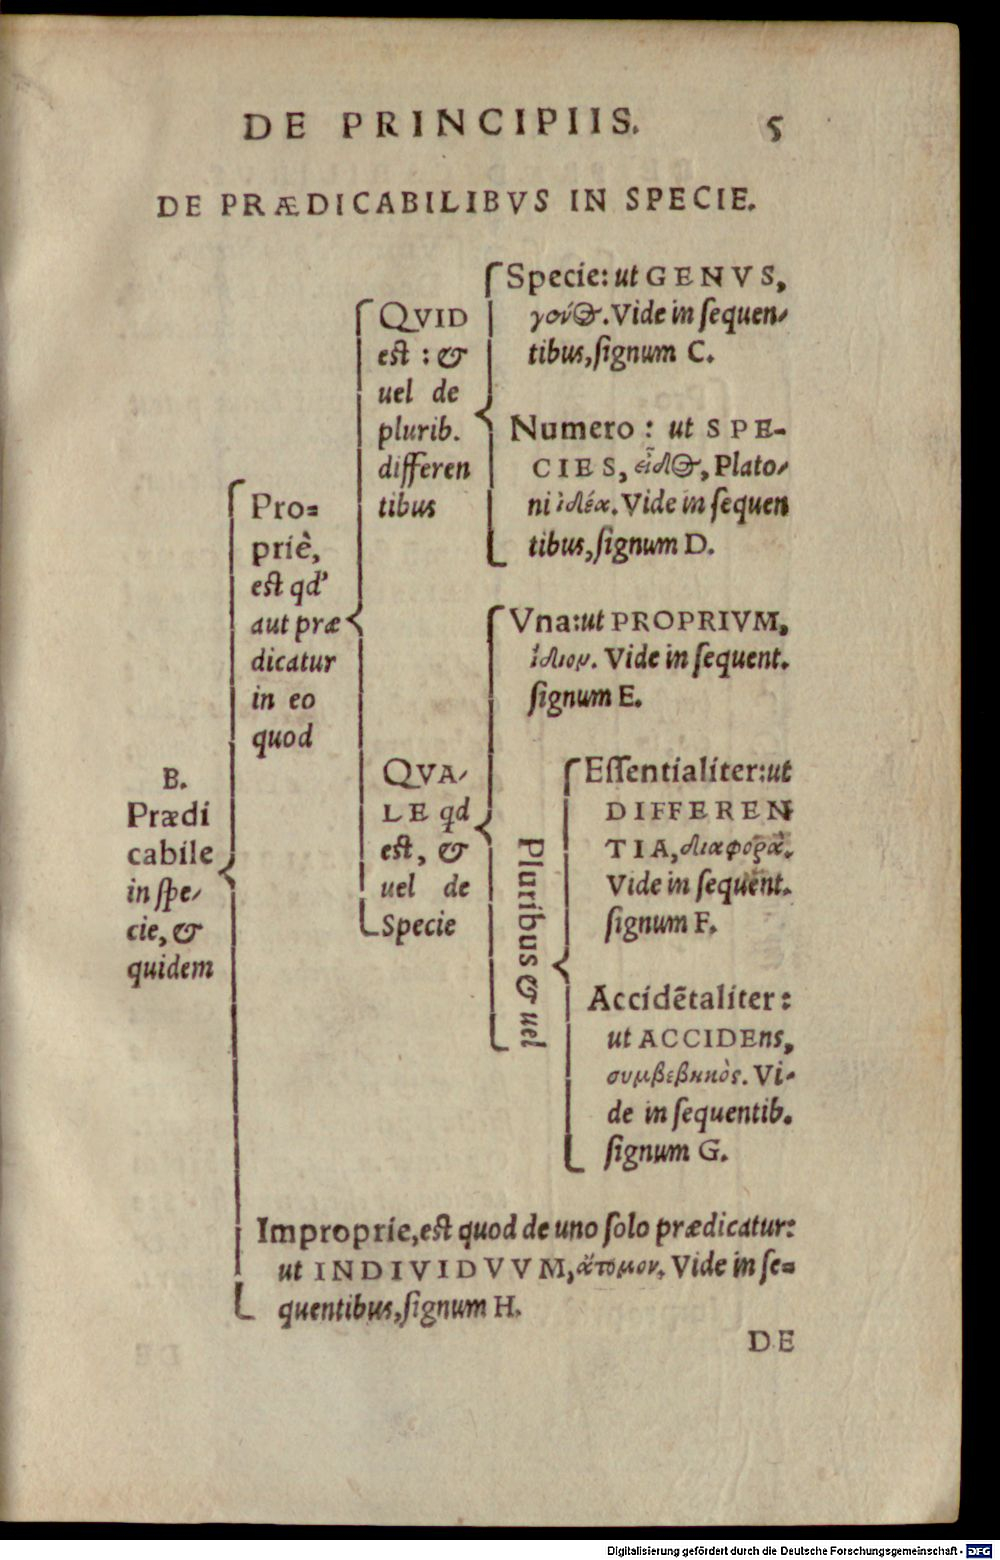 DE PRINCIPIIS. 5
DE PRÆDICABILIBVS IN SPECIE.
B.
Prædi
cabile
in spe-
cie, &
quidem
Pro=
priè,
est qd'
aut præ
dicatur
in eo
quod
QVID
est : &
uel de
plurib.
differen
tibus
Specie: ut GENVS,
γούϚ. Vide in sequen-
tibus, signum C.
Numero : ut SPE-
CIES, εἶδϚ, Plato-
ni ἰδέα. Vide in sequen
tibus, signum D.
QVA-
LE qd
est, &
uel de
Specie
Vna: ut PROPRIVM,
ἴδιον. Vide in sequent.
signum E.
Pluribus & uel
Essentialiter: ut
DIFFEREN
TIA, διαφορὰ.
Vide in sequent.
signum F.
Accidētaliter:
ut ACCIDEns,
συμβεβηκὸς. Vi-
de in sequentib.
signum G.
Improprie, est quod de uno solo prædicatur:
ut INDIVIDVVM, ἄτομον. Vide in se=
quentibus, signum H.
DE
Digitalisierung gefördert durch die Deutsche Forschungsgemeinschaft - DFG